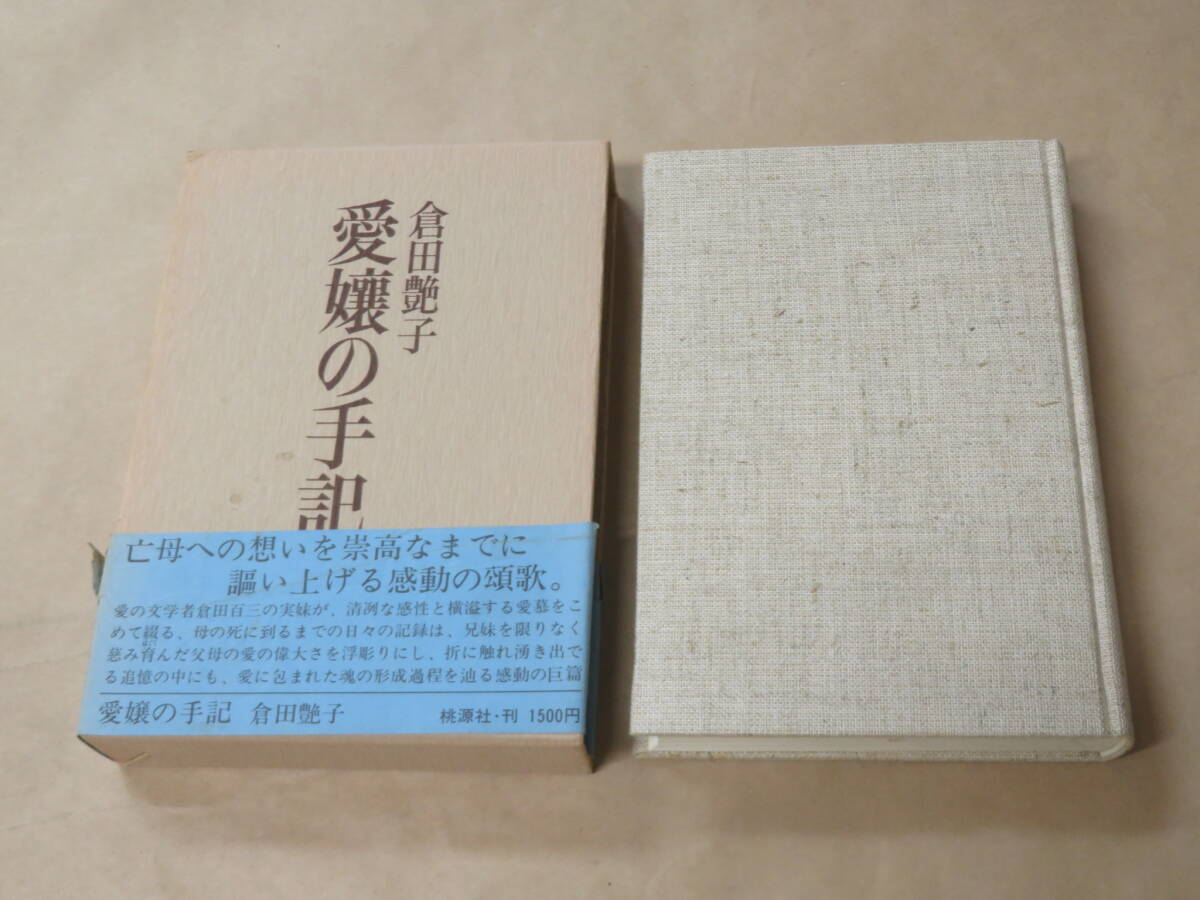 倉田艶子
愛嬢の手記
亡母への想いを崇高なまでに
謳い上げる感動の頌歌。
愛の文学者倉田百三の実妹が、清冽な感性と横溢する愛慕をこ
めて綴る、母の死に到るまでの日々の記録は、兄妹を限りなく
慈み育んだ父母の愛の偉大さを浮彫りにし、折に触れ湧き出で
る追憶の中にも、愛に包まれた魂の形成過程を辿る感動の巨篇
愛嬢の手記 倉田艶子 桃源社・刊 1500円